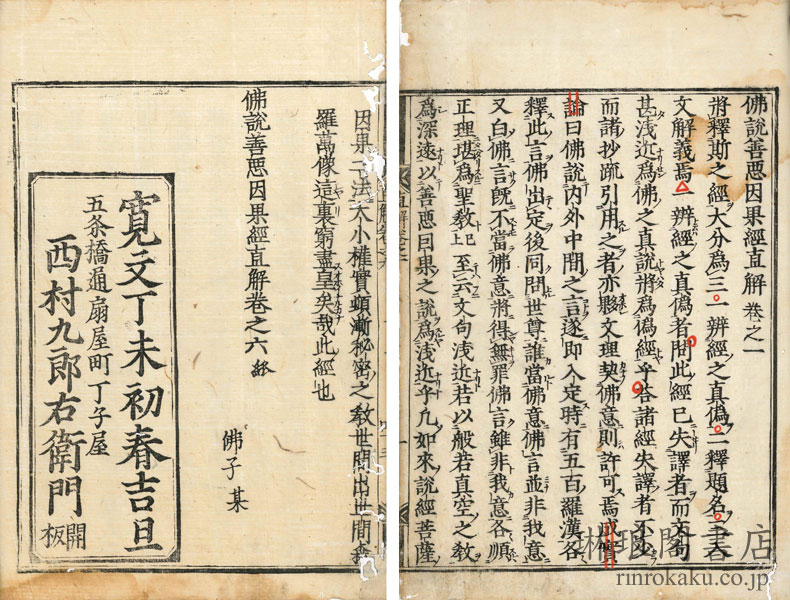 佛說善惡因果經直解 卷之一
將釋斯之經大分爲三一辨經之真僞二釋題名三入
文解義焉一辨經之真僞者問此經已失譯者而文句
甚淺近爲佛之真說將爲僞經乎答諸經失譯者不少
而諸抄疏引用之者亦夥文理契佛意則許可焉
論曰佛說內外中間之言遂即入定時有五百羅漢各
釋此言佛出定後同問世尊誰當佛意佛言並非我意
又白佛言既不當佛意將得無罪佛言雖非我意各順
正理堪爲聖教已上至云文句淺近若以般若真空之教
爲深遠以善惡因果之說爲淺近乎凡如來說經菩薩
因果二法大小權實頓漸秘密之教世間出世間森
羅萬像這裏窮盡皇矣哉此經也
佛子某
佛說善惡因果經直解卷之六 終
寛文丁未初春吉旦
五条橋通扇屋町丁子屋
西村九郎右衛門
開板
林琅閣書店
rinrokaku.co.jp